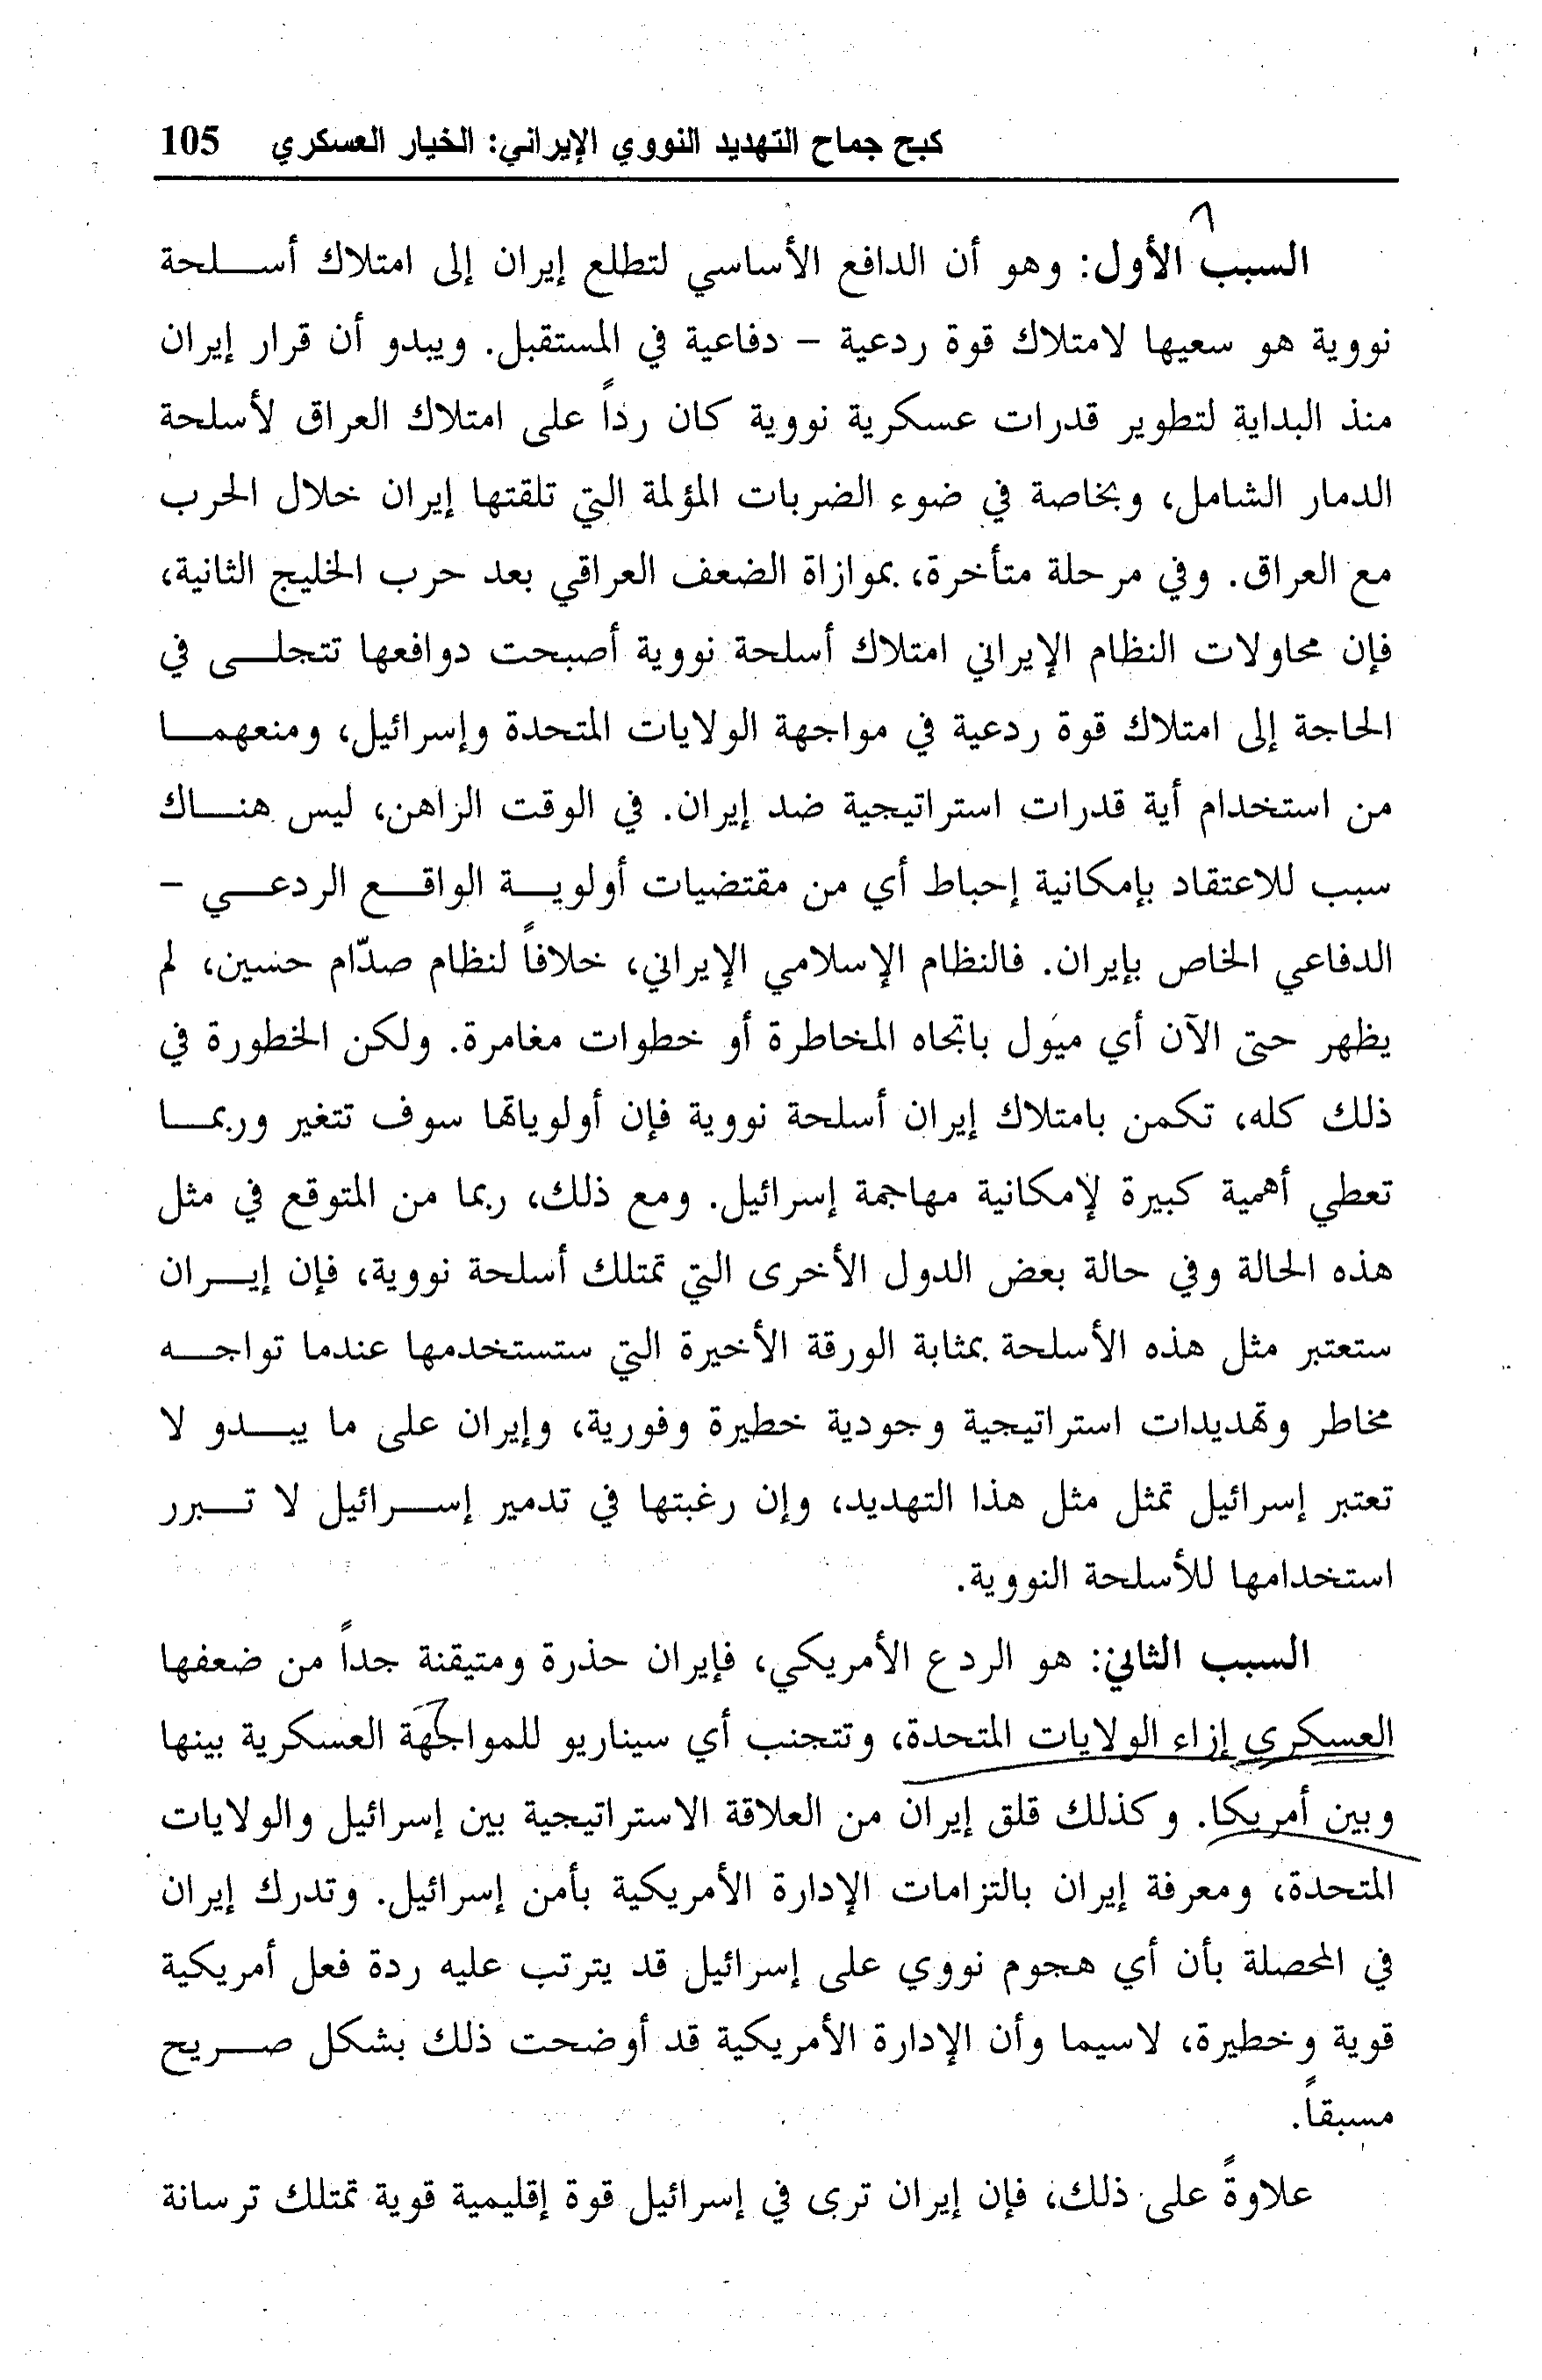 كبح جماح التهديد النووي الإيراني: الخيار العسكري 105
السبب الأول: وهو أن الدافع الأساسي لتطلع إيران إلى امتلاك أسلحة
نووية هو سعيها لامتلاك قوة ردعية - دفاعية في المستقبل. ويبدو أن قرار إيران
منذ البداية لتطوير قدرات عسكرية نووية كان رداً على امتلاك العراق لأسلحة
الدمار الشامل، وبخاصة في ضوء الضربات المؤلمة التي تلقتها إيران خلال الحرب
مع العراق. وفي مرحلة متأخرة، بموازاة الضعف العراقي بعد حرب الخليج الثانية،
فإن محاولات النظام الإيراني امتلاك أسلحة نووية أصبحت دوافعها تتجلى في
الحاجة إلى امتلاك قوة ردعية في مواجهة الولايات المتحدة وإسرائيل، ومنعهما
من استخدام أية قدرات استراتيجية ضد إيران. في الوقت الراهن، ليس هناك
سبب للاعتقاد بإمكانية إحباط أي من مقتضيات أولوية الواقع الردعي -
الدفاعي الخاص بإيران. فالنظام الإسلامي الإيراني، خلافاً لنظام صدّام حسين، لم
يظهر حتى الآن أي ميول باتجاه المخاطرة أو خطوات مغامرة. ولكن الخطورة في
ذلك كله، تكمن بامتلاك إيران أسلحة نووية فإن أولوياتها سوف تتغير وربما
تعطي أهمية كبيرة لإمكانية مهاجمة إسرائيل. ومع ذلك، ربما من المتوقع في مثل
هذه الحالة وفي حالة بعض الدول الأخرى التي تمتلك أسلحة نووية، فإن إيران
ستعتبر مثل هذه الأسلحة بمثابة الورقة الأخيرة التي ستستخدمها عندما تواجه
مخاطر وتهديدات استراتيجية وجودية خطيرة وفورية، وإيران على ما يبدو لا
تعتبر إسرائيل تمثل مثل هذا التهديد، وإن رغبتها في تدمير إسرائيل لا تبرر
استخدامها للأسلحة النووية.
السبب الثاني: هو الردع الأمريكي، فإيران حذرة ومتيقنة جداً من ضعفها
العسكري إزاء الولايات المتحدة، وتتجنب أي سيناريو للمواجهة العسكرية بينها
وبين أمريكا. وكذلك قلق إيران من العلاقة الاستراتيجية بين إسرائيل والولايات
المتحدة، ومعرفة إيران بالتزامات الإدارة الأمريكية بأمن إسرائيل. وتدرك إيران
في المحصلة بأن أي هجوم نووي على إسرائيل قد يترتب عليه ردة فعل أمريكية
قوية وخطيرة، لاسيما وأن الإدارة الأمريكية قد أوضحت ذلك بشكل صريح
مسبقاً.
علاوةً على ذلك، فإن إيران ترى في إسرائيل قوة إقليمية قوية تمتلك ترسانة